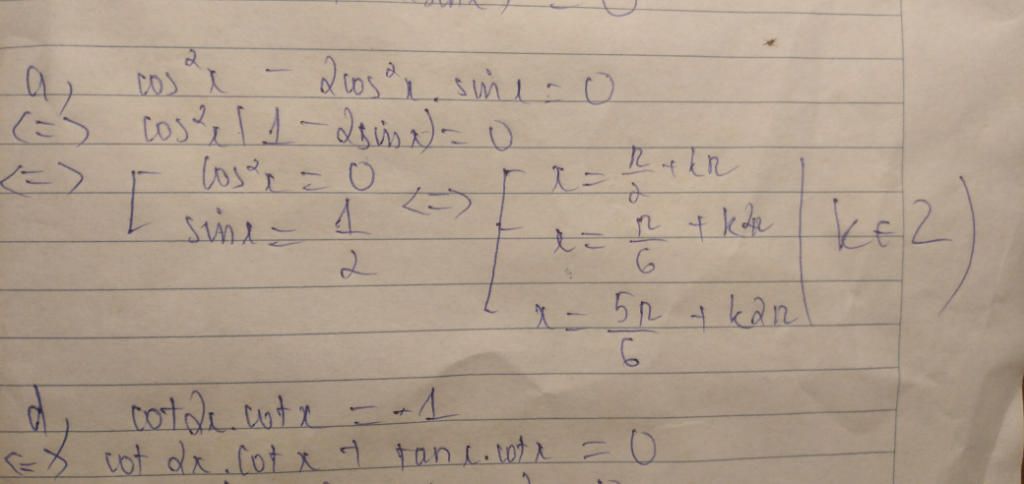 a, cos²x - 2cos²x. sinx = 0
<=> cos²x(1 - 2sinx) = 0
<=> [ cos²x = 0 <=> [ x = π/2 + kπ
sinx = 1/2 x = π/6 + k2π (k ∈ Z)
x = 5π/6 + k2π
d, cot2x.cotx = -1
<=> cot 2x.cotx + tanx.cotx = 0